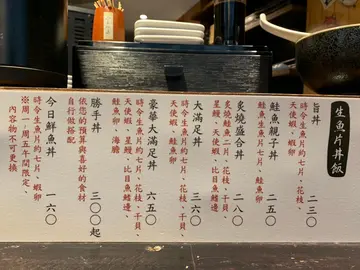 生魚片丼飯
旨丼 二三〇
時令生魚片約七片、蝦卵
天使蝦
鮭魚親子丼 二五〇
鮭魚生魚片約七片、
鮭魚卵
炙燒盛合丼 二八〇
炙燒鮭魚二片、花枝、干貝、
星鰻、天使蝦、比目魚鰭邊
大滿足丼 三六〇
時令生魚片約七片、花枝、干貝、
天使蝦、鮭魚卵
豪華大滿足丼 六五〇
時令生魚片約七片、花枝、干貝、
天使蝦、星鰻、比目魚鰭邊、
鮭魚卵、海膽
勝手丼 三〇〇起
依您的預算與喜好的食材
自行做搭配
今日鮮魚丼 一六〇
時令生魚片約七片、蝦卵
※周一~周五午間限定、
內容物不可更換